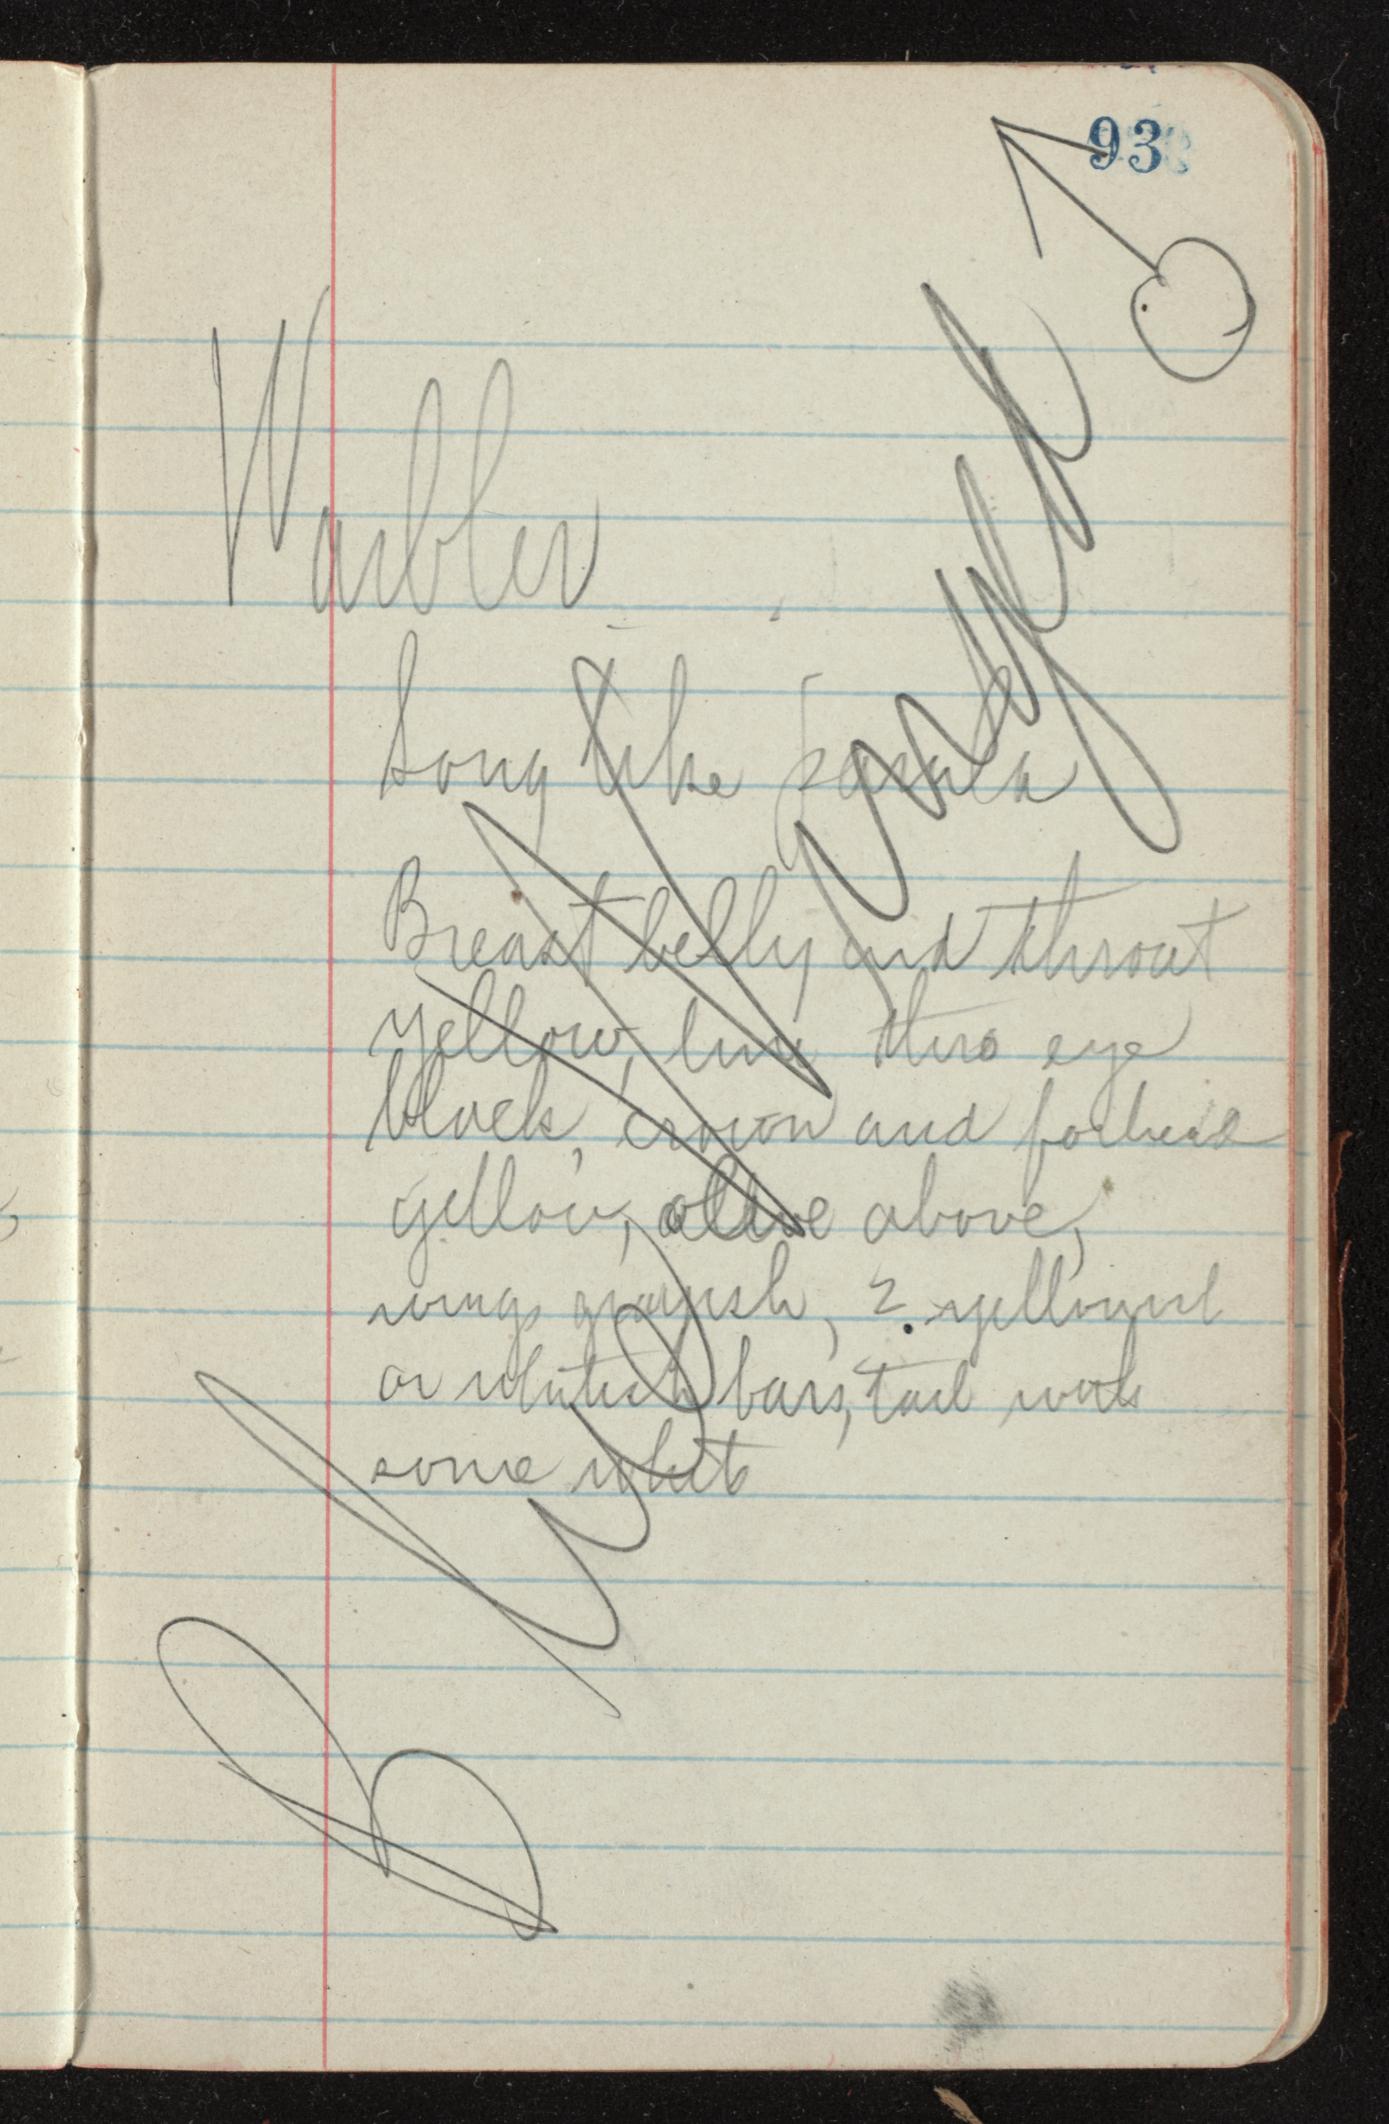 93
Warbler
Song like parula
Breast belly and throat
yellow, line thro eye
black, crown and forhead
yellow, olive above,
wings grayish, 2 yellowish
or whitish bars, tail with
some white
Blue Winged ♂